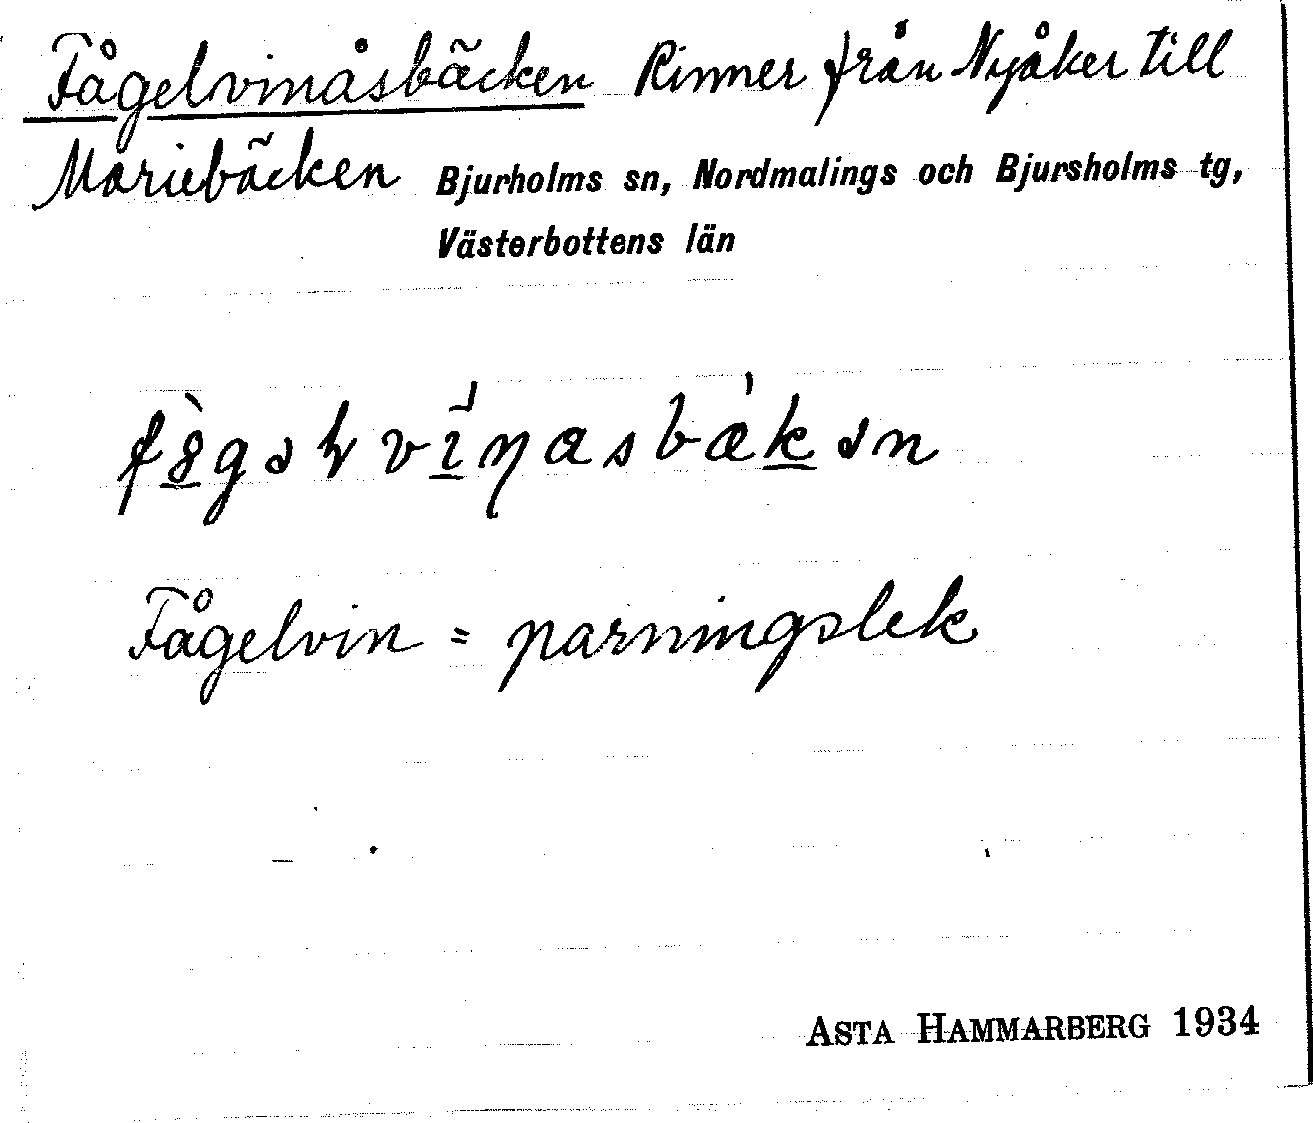 Fågelvinåsbäcken Rinner från Nyåker till
Mariebäcken Bjurholms sn, Nordmalings och Bjursholms tg,
Västerbottens län
Fågelvin = parningslek
ASTA HAMMARBERG 1934